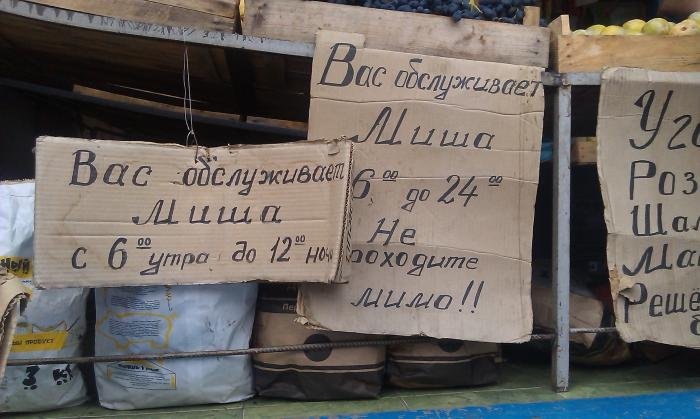 Вас обслуживает
Миша
с 6⁰⁰ утра до 12⁰⁰ ночи
Вас обслуживает
Миша
6⁰⁰ до 24⁰⁰
Не
проходите
мимо!!
Уго
Роз
Шаш
Ман
Решё
продукт
3 кг